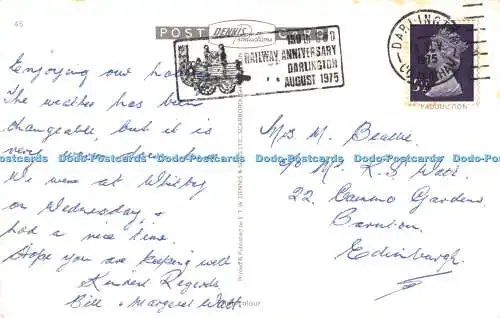 45
POST DENNIS CARD
Productions
150th S & D
RAILWAY ANNIVERSARY
DARLINGTON
AUGUST 1975
DARLINGTON
1975
Enjoying our
The weather has been
changeable, but it is
very
We were at Whitby
on Wednesday &
had a nice time.
Hope you are keeping well
Kindest Regards
Bill & Margaret Watt
Printed & Published by E. T. W. DENNIS & SONS LTD. SCARBOROUGH
Mrs M. Beattie
c/o Mr. R. S. Watt
22, Cammo Gardens,
Barnton,
Edinburgh.
Dodo-Postcards Dodo-Postcards Dodo-Postcards Dodo-Postcards Dodo-Postcards